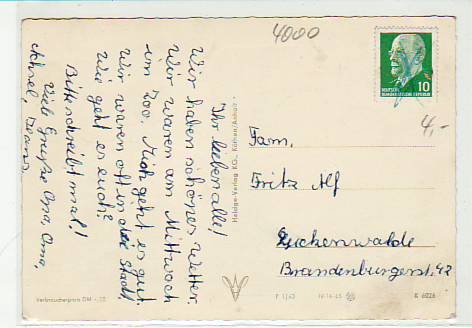 4000
Ihr lieben alle!
Wir haben schönes Wetter.
Wir waren am Mittwoch
im Zoo. Mich geht es gut.
Wir waren oft in der Stadt.
Wie geht es euch?
Bitte schreibt mal!
Viele Grüße Opa, Oma,
Heldge-Verlag KG., Köthen/Anhalt
Verbraucherpreis DM -,20
DEUTSCHE
DEMOKRATISCHE REPUBLIK
10
4,-
Fam.
Fritz Alf
Luckenwalde
Brandenburgerstr. 42
K 6026